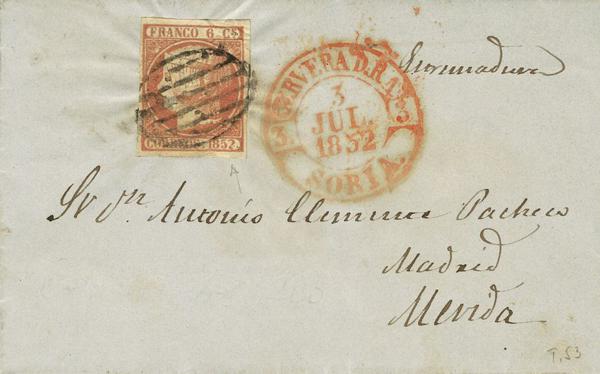 FRANCO 6 CS
CORREOS. 1852.
CERVERA D.R.A.
3
JUL.
1852
SORIA.
13 13
Extremadura
Sr Dn. Antonio Clemente Pacheco
Madrid
Merida
T.53